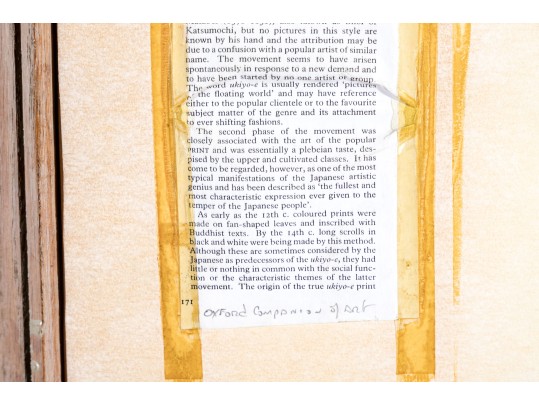 Katsumochi, but no pictures in this style are
known by his hand and the attribution may be
due to a confusion with a popular artist of similar
name. The movement seems to have arisen
spontaneously in response to a new demand and
to have been started by no one artist or group.
The word ukiyo-e is usually rendered 'pictures
the floating world' and may have reference
either to the popular clientele or to the favourite
subject matter of the genre and its attachment
to ever shifting fashions.
The second phase of the movement was
closely associated with the art of the popular
PRINT and was essentially a plebeian taste, des-
pised by the upper and cultivated classes. It has
come to be regarded, however, as one of the most
typical manifestations of the Japanese artistic
genius and has been described as 'the fullest and
most characteristic expression ever given to the
temper of the Japanese people'.
As early as the 12th c. coloured prints were
made on fan-shaped leaves and inscribed with
Buddhist texts. By the 14th c. long scrolls in
black and white were being made by this method.
Although these are sometimes considered by the
Japanese as predecessors of the ukiyo-e, they had
little or nothing in common with the social func-
tion or the characteristic themes of the latter
movement. The origin of the true ukiyo-e print
171
Oxford Companion of Art